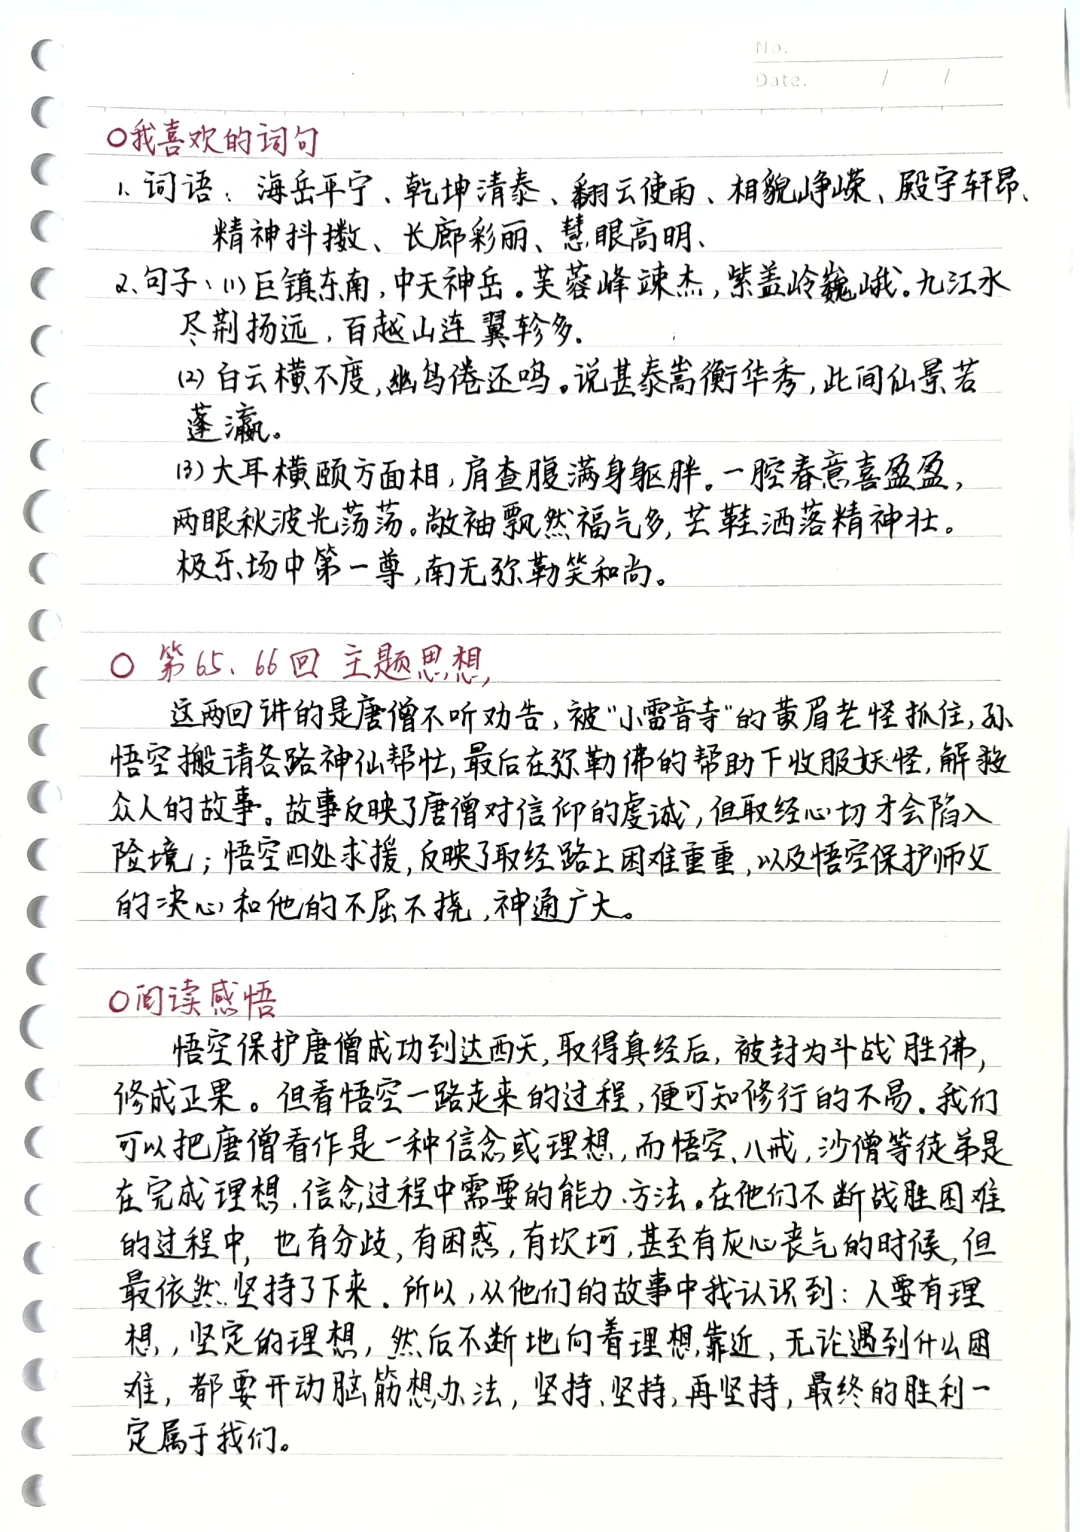 No.
Date. / /
○我喜欢的词句
1、词语：海岳平宁、乾坤清泰、翻云使雨、相貌峥嵘、殿宇轩昂、
精神抖擞、长廊彩丽、慧眼高明、
2、句子：(1)巨镇东南，中天神岳。芙蓉峰竦杰，紫盖岭巍峨。九江水
尽荆扬远，百越山连翼轸多。
(2)白云横不度，幽鸟倦还鸣。说甚泰嵩衡华秀，此间仙景若
蓬瀛。
(3)大耳横颐方面相，肩查腹满身躯胖。一腔春意喜盈盈，
两眼秋波光荡荡。敞袖飘然福气多，芒鞋洒落精神壮。
极乐场中第一尊，南无弥勒笑和尚。
○ 第65、66回 主题思想
这两回讲的是唐僧不听劝告，被“小雷音寺”的黄眉老怪抓住，孙
悟空搬请各路神仙帮忙，最后在弥勒佛的帮助下收服妖怪，解救
众人的故事。故事反映了唐僧对信仰的虔诚，但取经心切才会陷入
险境；悟空四处求援，反映了取经路上困难重重，以及悟空保护师父
的决心和他的不屈不挠，神通广大。
○阅读感悟
悟空保护唐僧成功到达西天，取得真经后，被封为斗战胜佛，
修成正果。但看悟空一路走来的过程，便可知修行的不易。我们
可以把唐僧看作是一种信念或理想，而悟空、八戒，沙僧等徒弟是
在完成理想、信念过程中需要的能力、方法。在他们不断战胜困难
的过程中，也有分歧，有困惑，有坎坷，甚至有灰心丧气的时候，但
最依然坚持了下来。所以，从他们的故事中我认识到：人要有理
想，坚定的理想，然后不断地向着理想靠近，无论遇到什么困
难，都要开动脑筋想办法，坚持、坚持，再坚持，最终的胜利一
定属于我们。